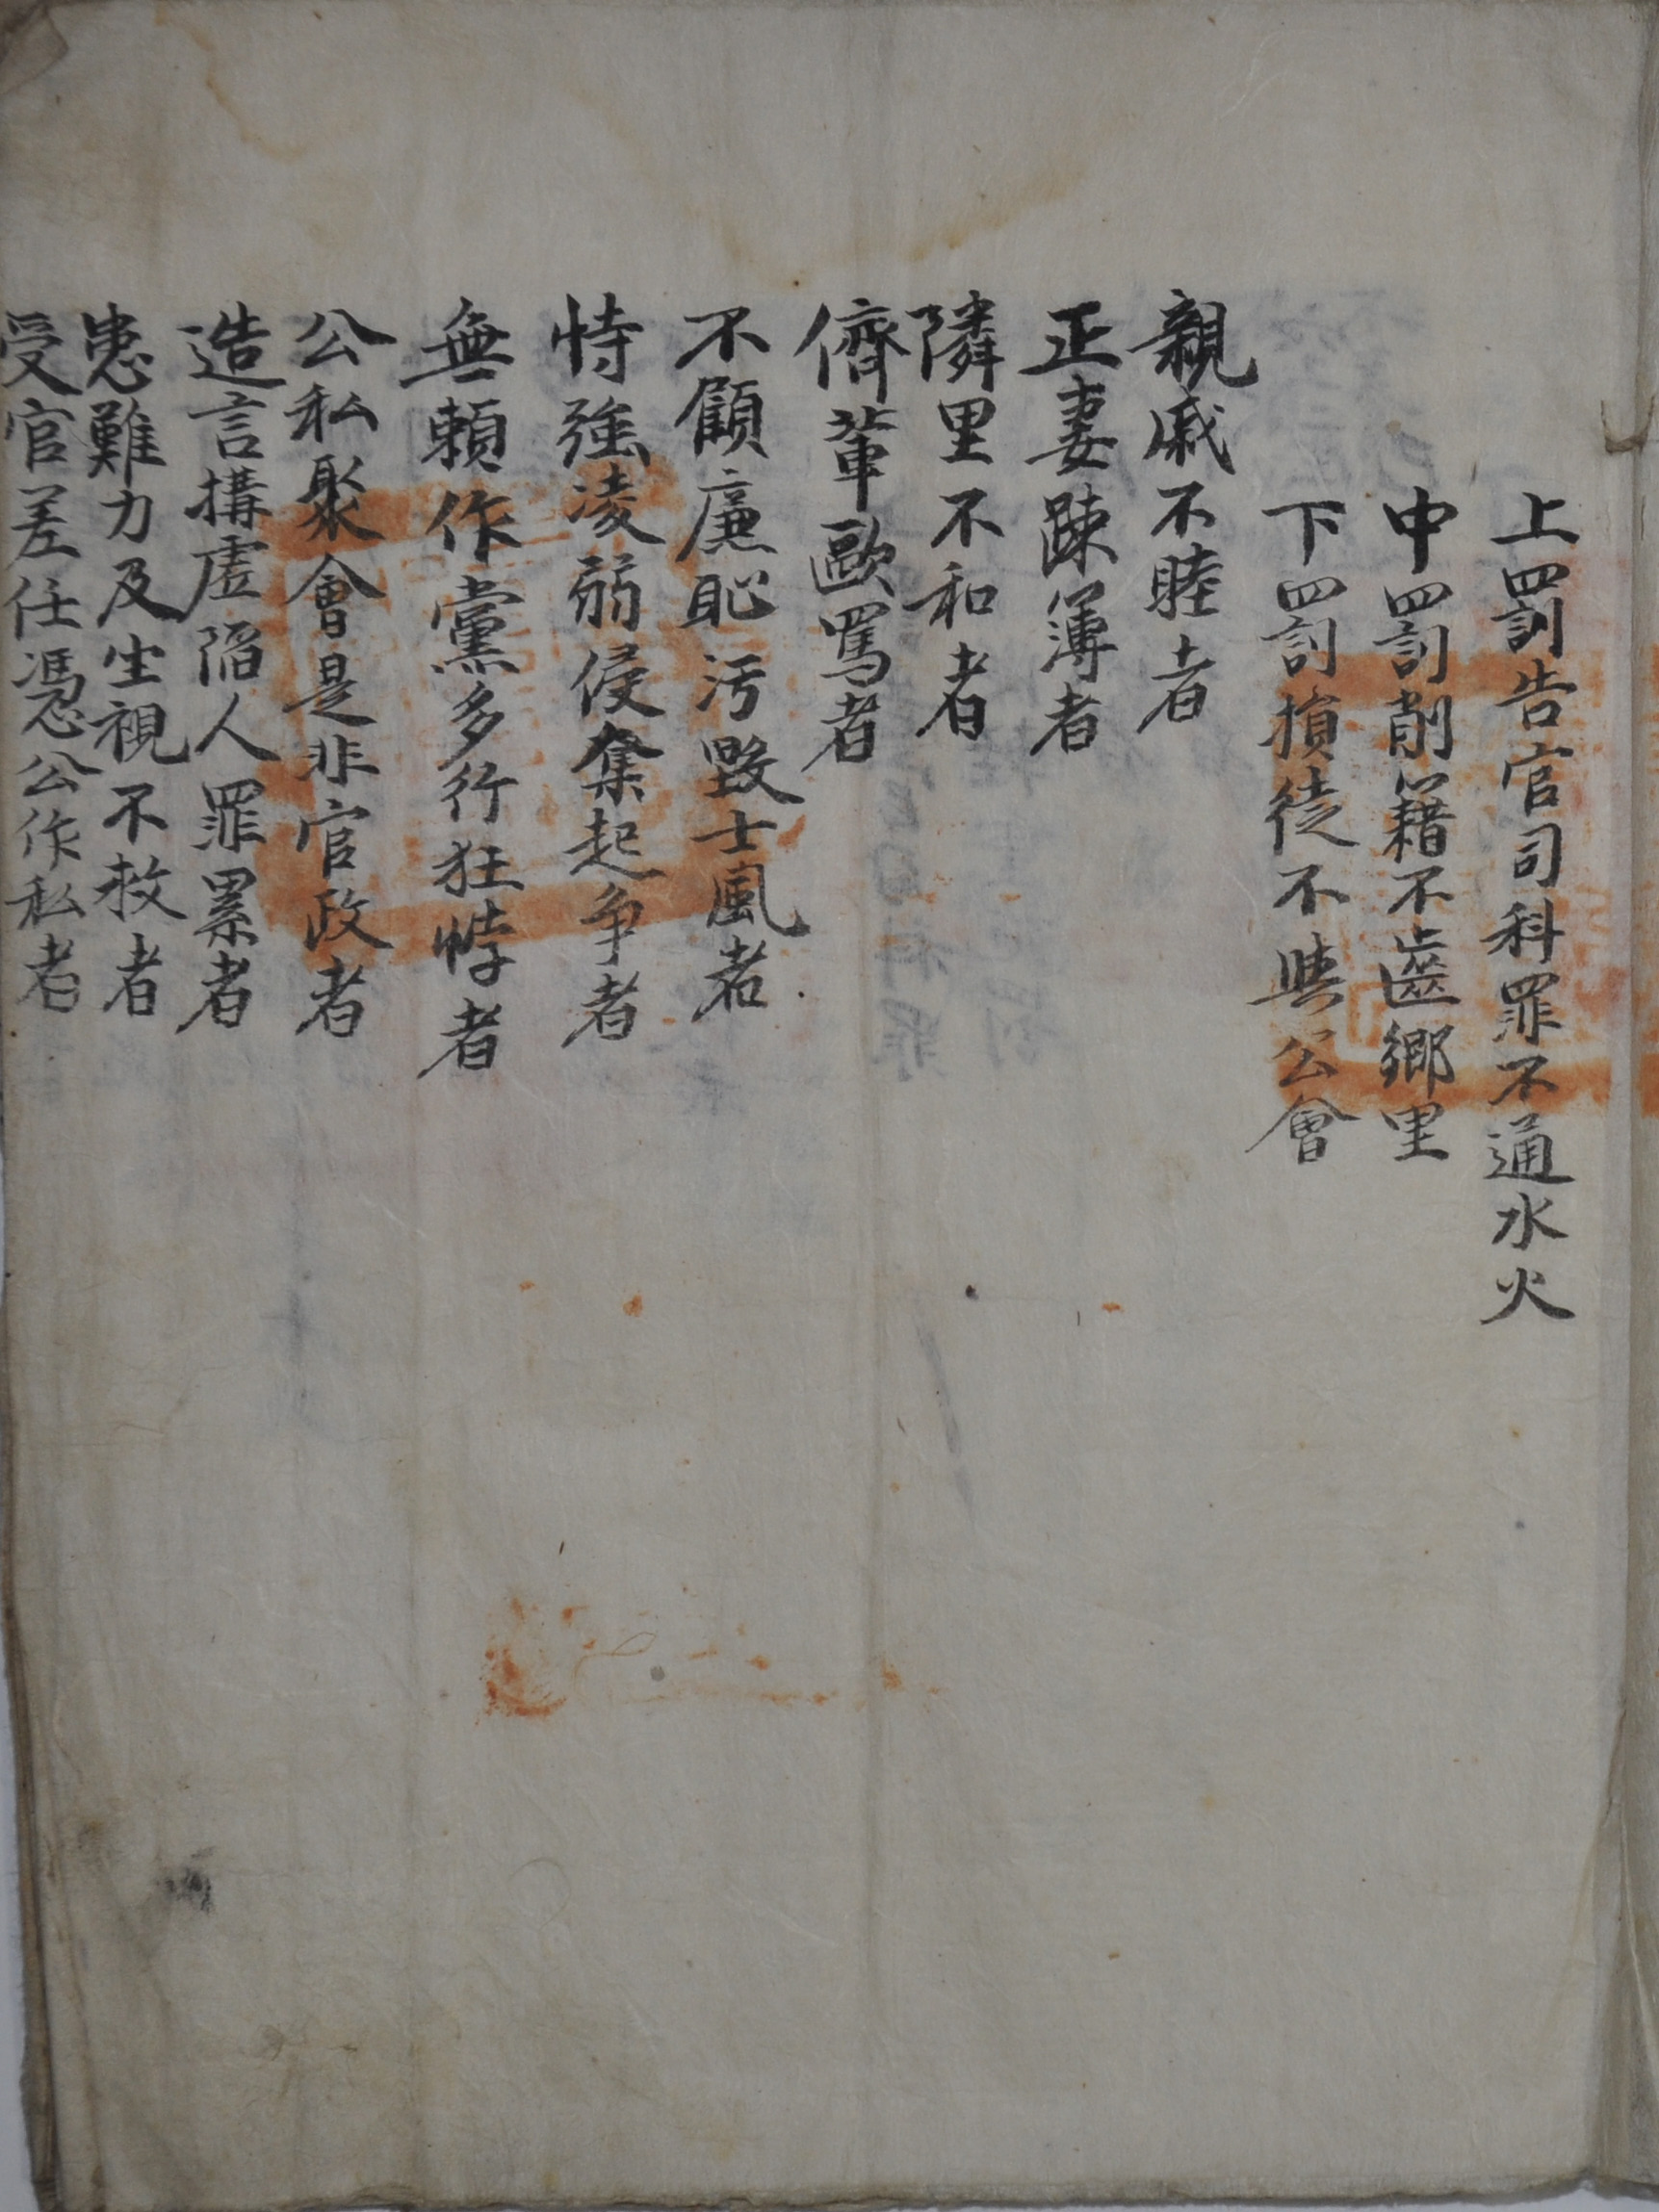 上罰告官司科罪不通水火
中罰削籍不齒鄉里
下罰損徒不與公會
親戚不睦者
正妻踈薄者
隣里不和者
儕輩歐罵者
不顧廉恥污毀士風者
恃強凌弱侵奪起爭者
無賴作黨多行狂悖者
公私聚會是非官政者
造言搆虛陷人罪累者
患難力及坐視不救者
受官差任憑公作私者